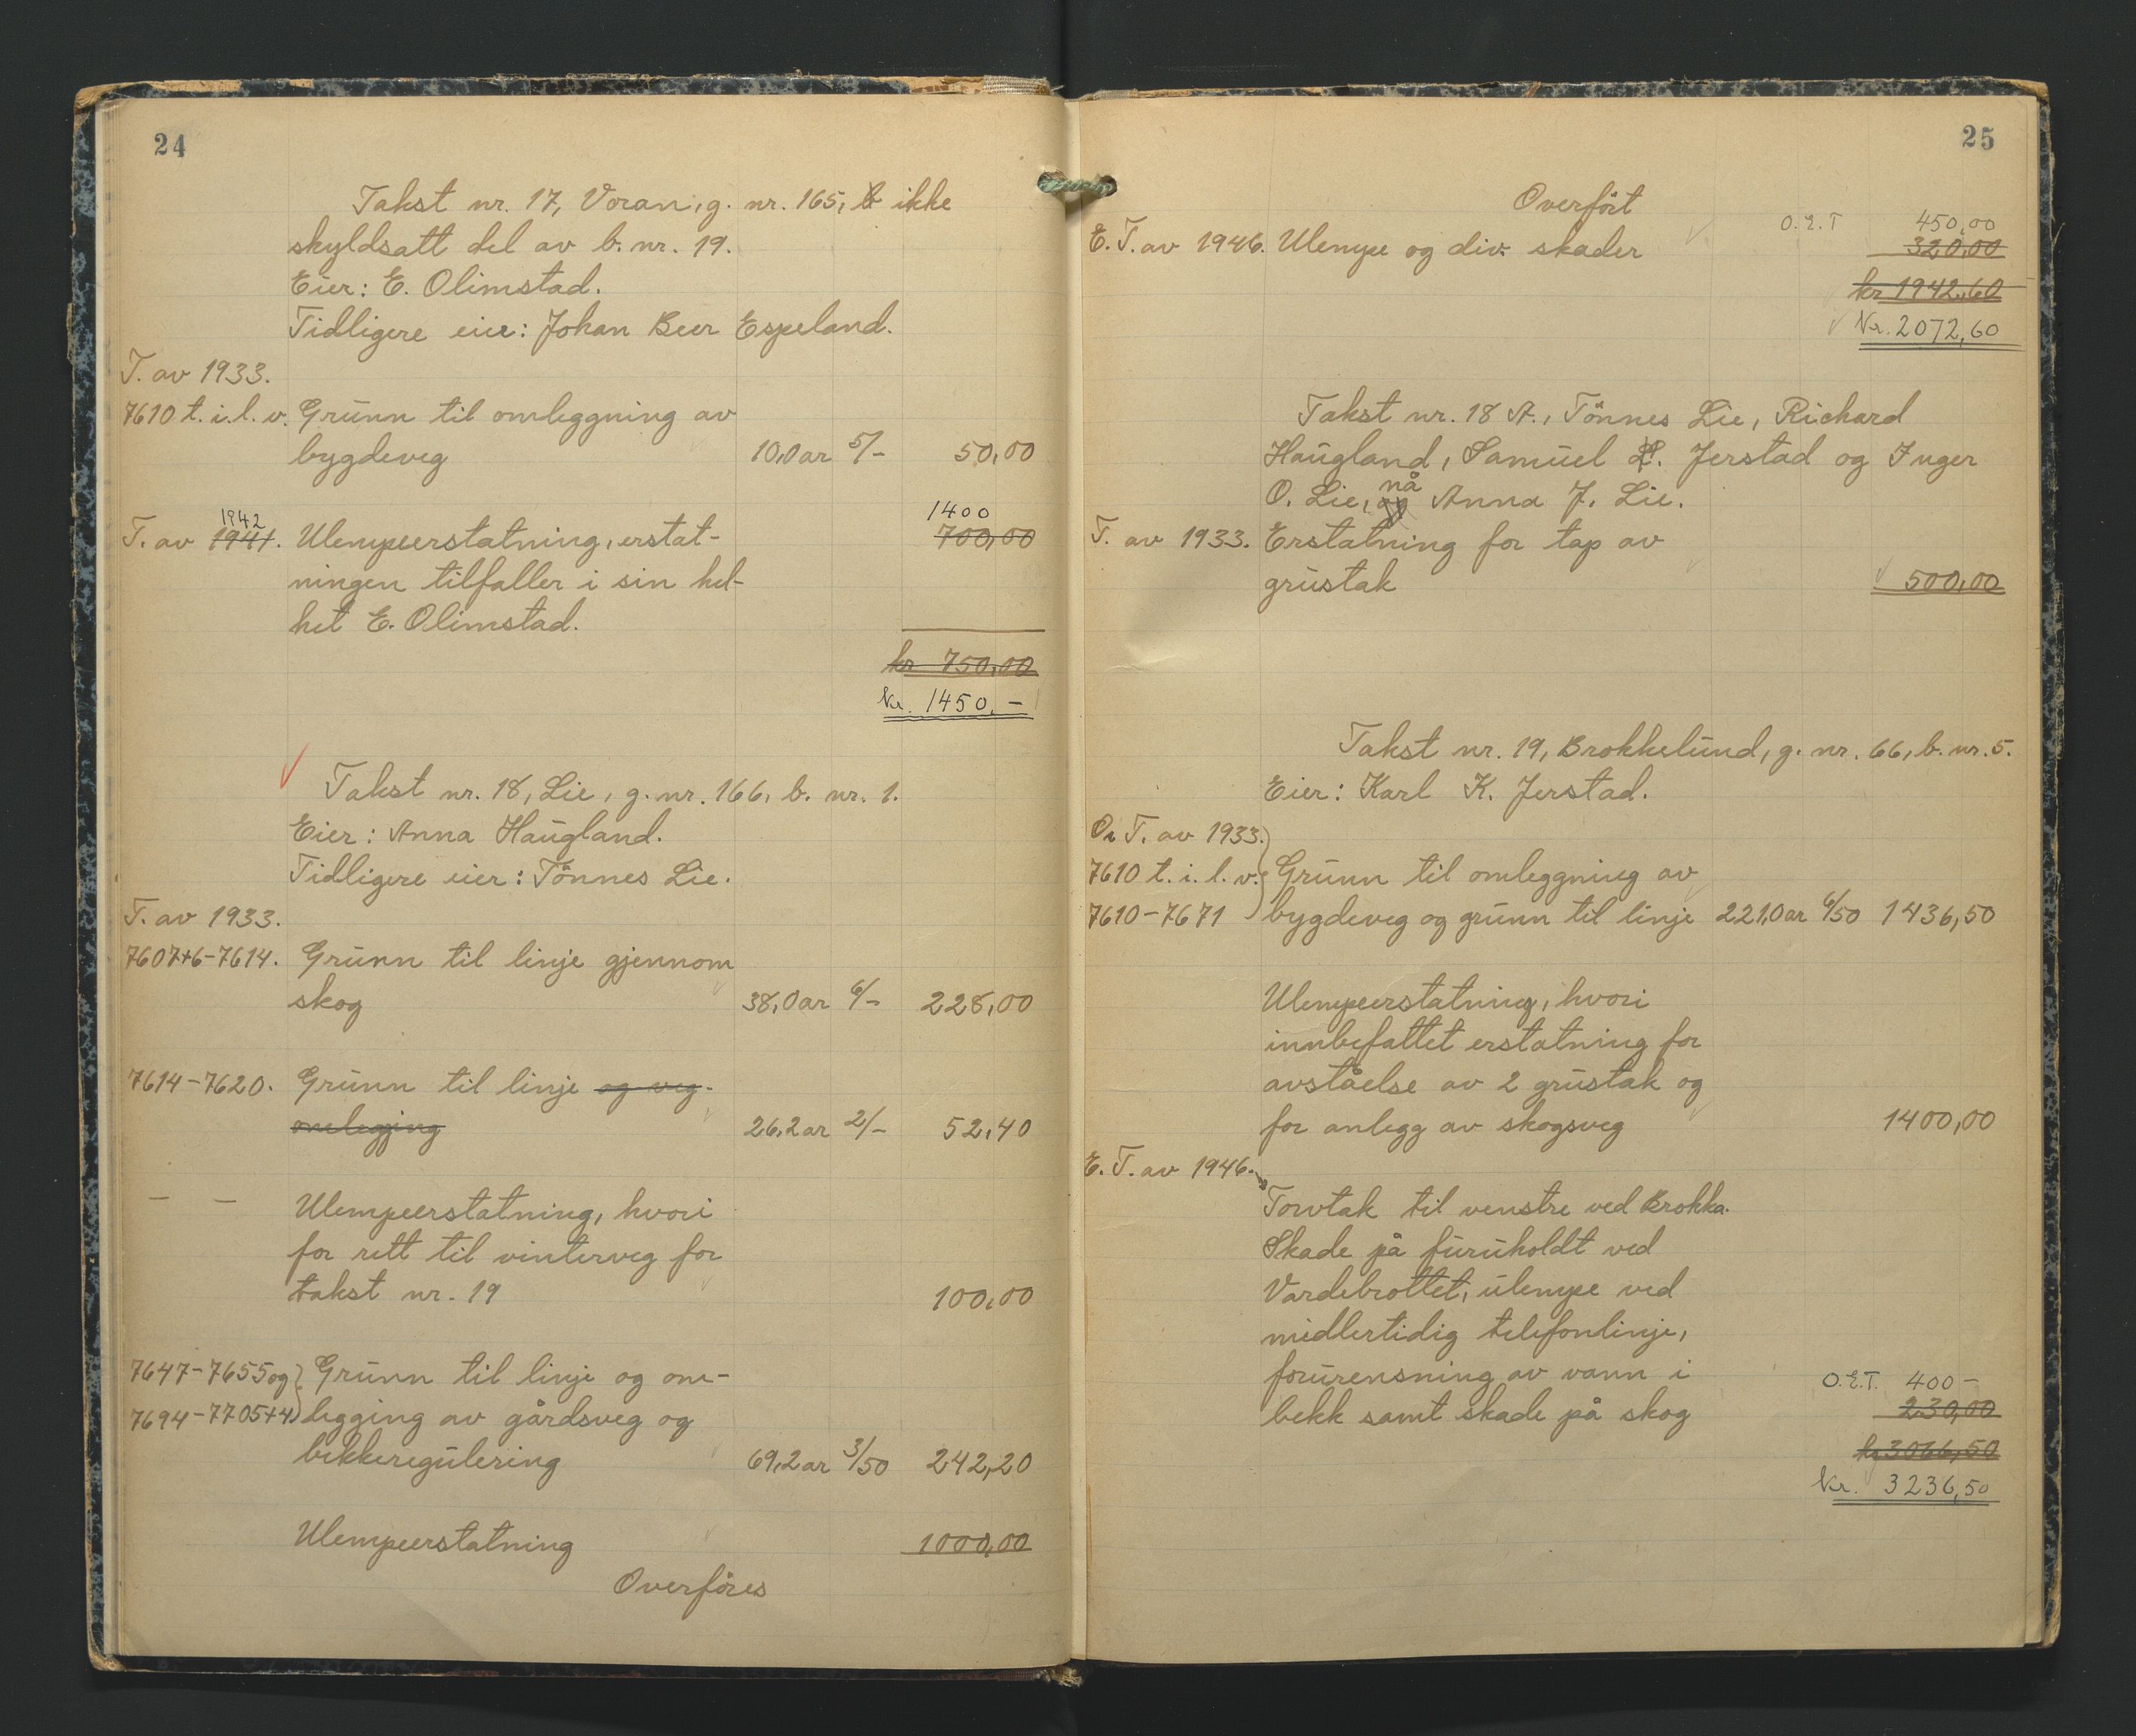 24
Takst nr. 17, Voran, g. nr. 165, b ikke
skyldsatt del av b. nr. 19.
Eier: E. Olimstad.
Tidligere eier: Johan Beer Espeland.
T. av 1933.
7610 t. i. l. v. Grunn til omleggning av
bygdeveg 10,0 ar 5/- 50,00
1942 1400
T. av 1941. Ulempeerstatning, erstat- 700,00
ningen tilfaller i sin hel-
het E. Olimstad.
kr 750,00
Kr. 1450,-
Takst nr. 18, Lie, g. nr. 166, b. nr. 1.
Eier: Anna Haugland.
Tidligere eier: Tönnes Lie.
T. av 1933.
7607+6-7614. Grunn til linje gjennom
skog 38,0 ar 6/- 228,00
7614-7620. Grunn til linje og veg-
omlegging 26,2 ar 2/- 52,40
- - Ulempeerstatning, hvori
for rett til vinterveg for
takst nr. 19 100,00
7647-7655 og Grunn til linje og om-
7694-7705+4 legging av gårdsveg og
bekkeregulering 69,2 ar 3/50 242,20
Ulempeerstatning 1000,00
Overføres
25
Overført
O.E.T 450,00
E. T. av 1946. Ulempe og div. skader 320,00
kr 1942,60
Kr. 2072,60
Takst nr. 18 A., Tönnes Lie, Richard
Haugland, Samuel P. Jerstad og Inger
O. Lie, og nå Anna J. Lie.
T. av 1933. Erstatning for tap av
grustak 500,00
Takst nr. 19, Brokkelund, g. nr. 66, b. nr. 5.
Eier: Karl K. Jerstad.
O. T. av 1933.
7610 t. i. l. v. Grunn til omleggning av
7610-7671 bygdeveg og grunn til linje 221,0 ar 6/50 1436,50
Ulempeerstatning, hvori
innbefattet erstatning for
avståelse av 2 grustak og
for anlegg av skogsveg 1400,00
E. T. av 1946.
Torvtak til venstre ved Brokka.
Skade på furuholdt ved
Vardebrottet, ulempe ved
midlertidig telefonlinje,
forurensning av vann i O.E.T. 400-
bekk samt skade på skog 230,00
kr 3066,50
Kr. 3236,50